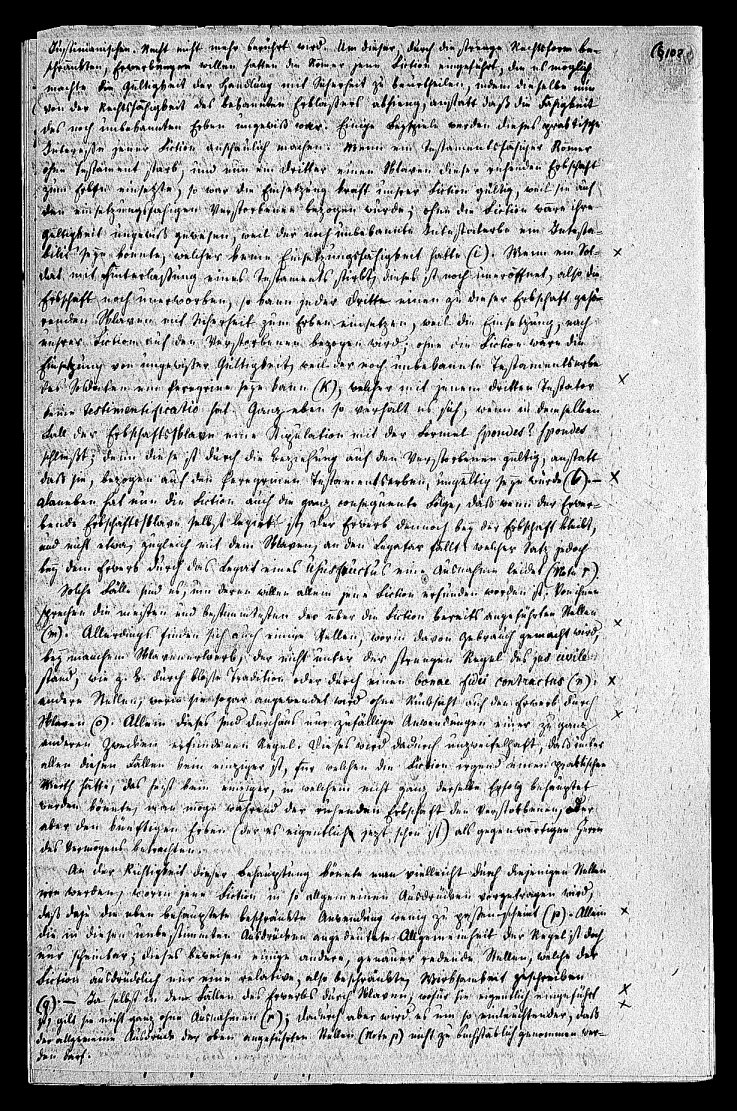 Justinianischen Recht nicht mehr berührt wird. Um dieser, durch die strenge Rechtsform be-
schränkten, Erwerbungen willen hatten die Römer jene Fiction eingeführt, die es möglich
machte die Gültigkeit der Handlung mit Sicherheit zu beurtheilen, indem dieselbe nun
von der Rechtsfähigkeit des bekannten Erblassers abhieng, anstatt daß die Fähigkeit
des noch unbekannten Erben ungewiß war. Einige Beyspiele werden dieses praktische
Interesse jener Fiction anschaulich machen. Wenn ein testamentsfähiger Römer
ohne Testament starb, und nun ein Dritter einen Sklaven dieser ruhenden Erbschaft
zum Erben einsetzte, so war die Einsetzung kraft unsrer Fiction gültig, weil sie auf
den einsetzungsfähigen Verstorbenen bezogen wurde; ohne die Fiction wäre ihre
Gültigkeit ungewiß gewesen, weil der noch unbekannte Intestaterbe ein Intesta-
bilis seyn konnte, welcher keine Einsetzungsfähigkeit hatte (i). Wenn ein Sol-
dat mit Hinterlassung eines Testaments stirbt, dieses ist noch uneröffnet, also die
Erbschaft noch unerworben, so kann jeder Dritte einen zu dieser Erbschaft gehö-
renden Sklaven mit Sicherheit zum Erben einsetzen, weil die Einsetzung, nach
unsrer Fiction auf den Verstorbenen bezogen wird; ohne die Fiction wäre die
Einsetzung von ungewisser Gültigkeit, weil der noch unbekannte Testamentserbe
des Soldaten ein Peregrine seyn kann (k), welcher mit jenem dritten Testator
keine testamentifactio hat. Ganz eben so verhält es sich, wenn in demselben
Fall der Erbschaftssklave eine Stipulation mit der Formel spondes? spondeo
schließt; denn diese ist durch die Beziehung auf den Verstorbenen gültig, anstatt
daß sie, bezogen auf den peregrinen Testamentserben, ungültig seyn würde (l). –
Daneben hat nun die Fiction auch die ganz consequente Folge, daß wenn der erwer-
bende Erbschaftssklave selbst legirt ist, der Erwerb dennoch bey der Erbschaft bleibt,
und nicht etwa, zugleich mit dem Sklaven, an den Legatar fällt, welcher Satz jedoch
bey dem Erwerb durch das Legat eines ususfructus eine Ausnahme leidet (Note r).
Solche Fälle sind es, um deren willen allein jene Fiction erfunden worden ist. Von ihnen
sprechen die meisten und bestimmtesten der über die Fiction bereits angeführten Stellen
(m). Allerdings finden sich auch einige Stellen, worin davon Gebrauch gemacht wird,
bey manchem Sklavenerwerb, der nicht unter der strengen Regel des jus civile
stand, wie z. B. durch bloße Tradition oder durch einen bonae fidei contractus (n);
andere Stellen, worin sie sogar angewendet wird ohne Rücksicht auf den Erwerb durch
Sklaven (o). Allein dieses sind durchaus nur zufällige Anwendungen einer zu ganz
anderen Zwecken erfundenen Regel. Dieses wird dadurch unzweifelhaft, daß unter
allen diesen Fällen kein einziger ist, für welchen die Fiction irgend einen praktischen
Werth hätte, das heißt kein einziger, in welchem nicht ganz derselbe Erfolg behauptet
werden könnte, man möge während der ruhenden Erbschaft den Verstorbenen, oder
aber den künftigen Erben (der es eigentlich jetzt schon ist) als gegenwärtigen Herrn
des Vermögens betrachten.
An der Richtigkeit dieser Behauptung könnte man vielleicht durch diejenigen Stellen
irre werden, worin jene Fiction in so allgemeinen Ausdrücken vorgetragen wird,
daß dazu die eben behauptete beschränkte Anwendung wenig zu passen scheint (p). Allein
die in diesen unbestimmten Ausdrücken angedeutete Allgemeinheit der Regel ist doch
nur scheinbar; dieses beweisen einige andere, genauer redende Stellen, welche der
Fiction ausdrücklich nur eine relative, also beschränkte, Wirksamkeit zuschreiben
(q). – Ja selbst in den Fällen des Erwerbs durch Sklaven, wofür sie eigentlich eingeführt
ist, gilt sie nicht ganz ohne Ausnahmen (r); dadurch aber wird es um so einleuchtender, daß
der allgemeine Ausdruck der oben angeführten Stellen (Note p) nicht zu buchstäblich genommen wer-
den darf.